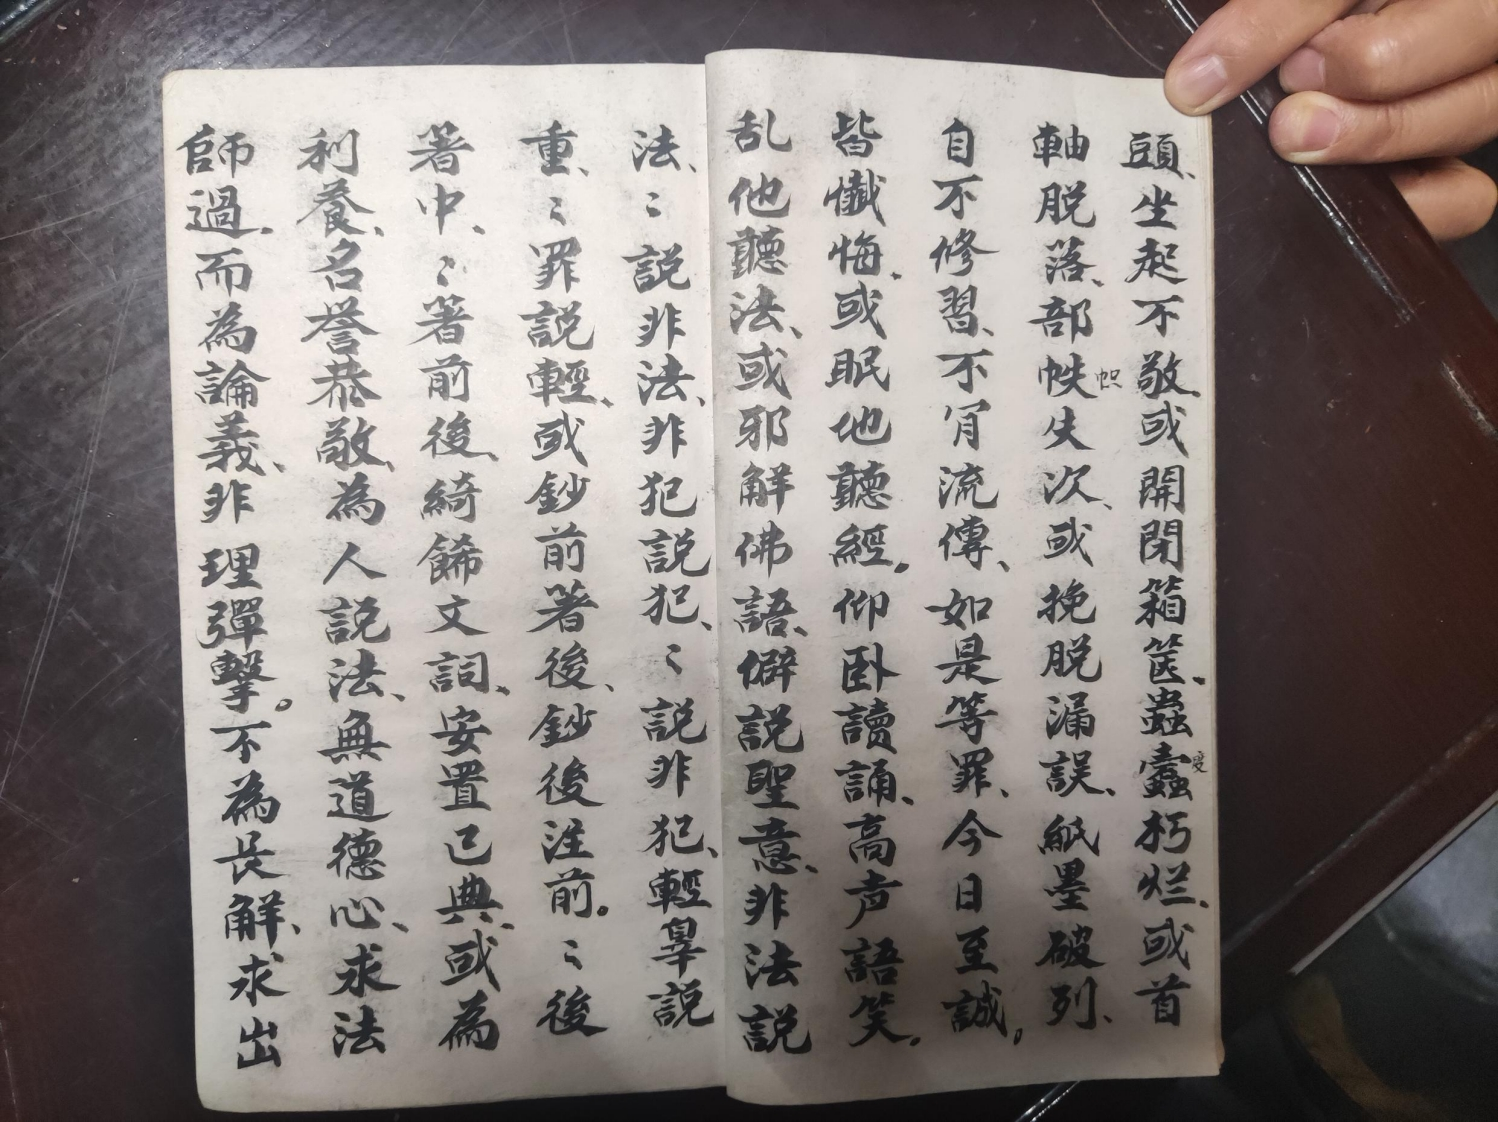 頭、坐起不敬、或開閉箱篋、蟲蠹朽烂、或首
軸脱落、部帙失次、或挽脱漏誤、紙墨破列、
帙
自不修習、不肎流傳、如是等罪、今日至誠。
皆懺悔、或眠他聽經。仰卧讀誦、高声語笑。
乱他聽法、或邪解佛語、僻説聖意、非法説
法、〻説非法、非犯説犯、〻説非犯、輕辠説
重、〻罪説輕、或鈔前著後、鈔後注前。〻後
著中、〻著前後、綺餙文詞、安置己典、或為
利養、名誉恭敬、為人説法、無道德心、求法
師過、而為論義、非理彈擊。不為長解、求出